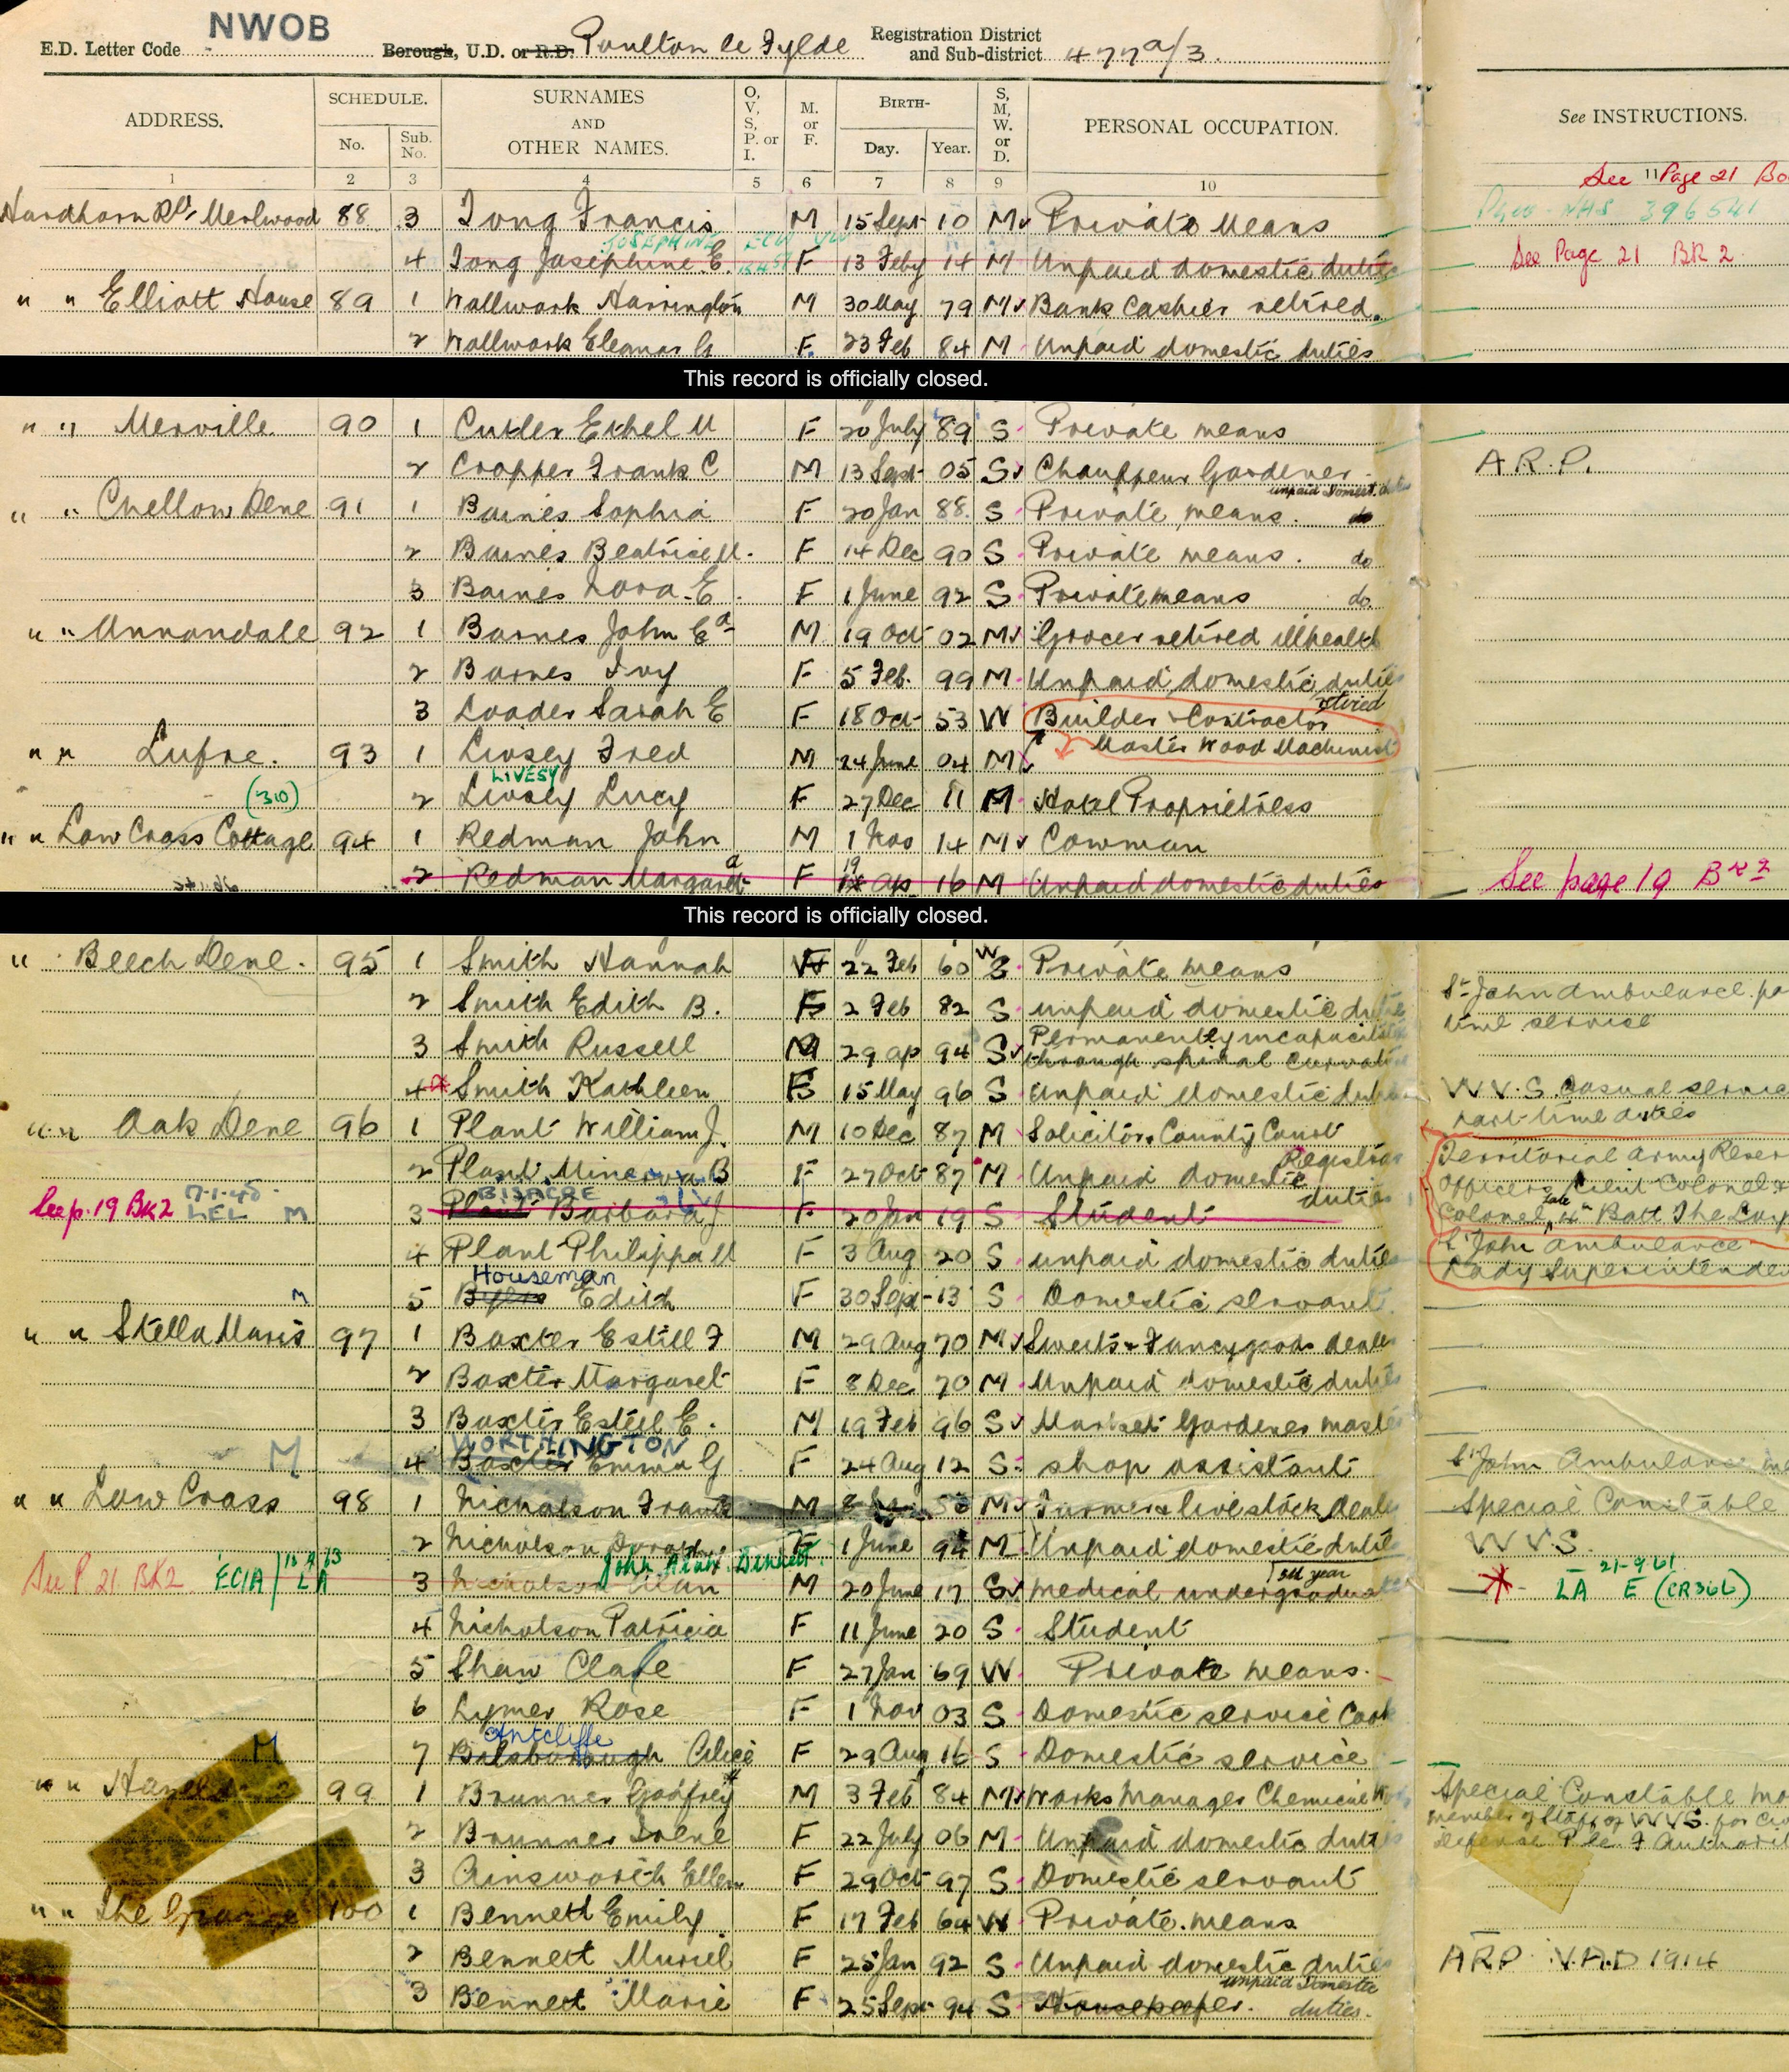 E.D. Letter Code NWOB Borough, U.D. or R.D. Poulton le Fylde Registration District and Sub-district 477a/3.
ADDRESS. SCHEDULE. No. Sub. No. SURNAMES AND OTHER NAMES. O, V, S, P. or I. M. or F. BIRTH- Day. Year. S, M, W. or D. PERSONAL OCCUPATION. See INSTRUCTIONS.
1 2 3 4 5 6 7 8 9 10
See Page 21
Hardhorn Rd Merlwood 88 3 Tong Francis M 15 Sept 10 M Private Means
JOSEPHINE
4 Tong Josephine E. F 13 Feby 14 M Unpaid domestic duties See Page 21 BK 2
" " Elliott House 89 1 Wallwork Harrington M 30 May 79 M Bank Cashier retired.
2 Wallwork Eleanor G F 23 Feb 84 M Unpaid domestic duties
This record is officially closed.
" " Merville 90 1 Cutler Ethel M F 20 July 89 S Private means
2 Cropper Frank C M 13 Sept 05 S Chauffeur Gardener A.R.P.
unpaid Domest. duties
" " Chellow Dene 91 1 Baines Sophia F 20 Jan 88 S Private means. do
2 Baines Beatrice M. F 14 Dec 90 S Private means. do
3 Baines Nora E. F 1 June 92 S Private means do
" " Annandale 92 1 Barnes John Ed M 19 Oct 02 M Grocer retired illhealth
2 Barnes Ivy F 5 Feb. 99 M Unpaid domestic duties
retired
3 Loader Sarah E F 18 Oct 53 W Builder & Contractor
Master Wood Machinist
" " Lufre. 93 1 Livsey Fred M 24 June 04 M
LIVESY
(310) 2 Livsey Lucy F 27 Dec 11 M Hotel Proprietress
" " Low Cross Cottage 94 1 Redman John M 1 Nov 14 M Cowman
2 Redman Margaret F 19 Ap 16 M Unpaid domestic duties See page 19 Bk 2
This record is officially closed.
" Beech Dene. 95 1 Smith Hannah F 22 Feb 60 W Private means
2 Smith Edith B. F 2 Feb 82 S unpaid domestic duties St John Ambulance
time service
3 Smith Russell M 29 Ap 94 S Permanently incapacitated
through spinal curvature
4 Smith Kathleen F 15 May 96 S Unpaid domestic duties W.V.S. Casual service
part-time duties
" " Oak Dene 96 1 Plant William J. M 10 Dec 87 M Solicitor & County Court Registrar Territorial Army Reser
2 Plant Minerva B F 27 Oct 87 M Unpaid domestic duties Officers Lieut Colonel &
BISACRE
See p. 19 BK2 7.1.45. LEL M 3 Plant Barbara J F 20 Jan 19 S Student Colonel late 4th Batt The Loy
4 Plant Philippa M F 3 Aug 20 S unpaid domestic duties St John Ambulance
Lady Superintende
Houseman
M 5 Byers Edith F 30 Sept 13 S Domestic servant.
" " Stella Maris 97 1 Baxter Estill F M 29 Aug 70 M Sweets & Fancy goods dealer
2 Baxter Margaret F 8 Dec 70 M Unpaid domestic duties
3 Baxter Estill E. M 19 Feb 96 S Market Gardener master
WORTHINGTON
M 4 Baxter Emma G F 24 Aug 12 S shop assistant St John Ambulance
" " Low Cross 98 1 Nicholson Francis M M Farmer & livestock dealer Special Constable
2 Nicholson F 1 June 94 M Unpaid domestic duties WVS.
John Alan Bennett
See P 21 BK2 ECIA LA 3 Nicholson Alan M 20 June 17 S Medical undergraduate 3rd year LA 21-9.61 E (CR36L)
4 Nicholson Patricia F 11 June 20 S Student
5 Shaw Clare F 27 Jan 69 W Private means.
6 Lymer Rose F 1 Nov 03 S Domestic service Cook
Antcliffe
M 7 Balsborough Alice F 29 Aug 16 S Domestic service
" " 99 1 Brunner Godfrey M 3 Feb 84 M Works Manager Chemical Special Constable
member of Staff of WVS. for
2 Brunner Irene F 22 July 06 M Unpaid domestic duties
3 Ainsworth Ellen F 29 Oct 97 S Domestic servant
" " The Grange 100 1 Bennett Emily F 17 Feb 64 W Private means
2 Bennett Muriel F 25 Jan 92 S Unpaid domestic duties ARP V.A.D 1914
unpaid Domestic
3 Bennett Marie F 25 Sept 94 S Housekeeper. duties.